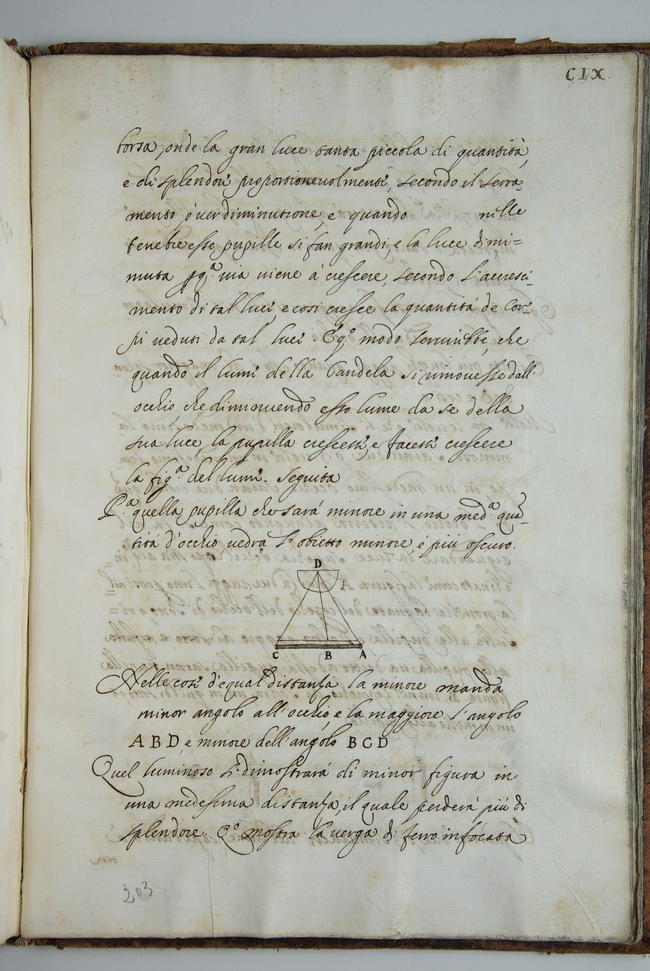 CIX.
borsa, onde la gran luce tanta piccola di quantità,
e di splendori proportionevolmenti, secondo il serra-
mento, o' ver diminutione, e quando nille
tenebre esse pupille si fan grandi, e la luce dimi=
nuta pq.ª via viene à crescere, secondo l'accresci-
mento di tal luci, e cosi cresce la quantitá de Cor-
pi veduti da tal luci. Eq.º modo servirebbe, che
quando il lumi della Candela si rimovesse dall'
occhio, che dimovendo esso lume da se della
sua luce, la pupilla crescessi, e facessi crescere
la fig.ª del lumi. seguita
P.ª quella pupilla che sará minore in una med.ª quã-
titá d'occhio vedrá l'obietto minore, e piú oscuro.
D
A
C B A
Nelle cosi d'equal distanza la minore manda
minor angolo all'occhio, e la maggiore l'angolo
A B D e minore dell'angolo B C D
Quel luminoso si dimostrará di minor figura in
una medesima distanza, il quale perderá piú di
splendore. Q.º mostra la verga di ferro infocata
203